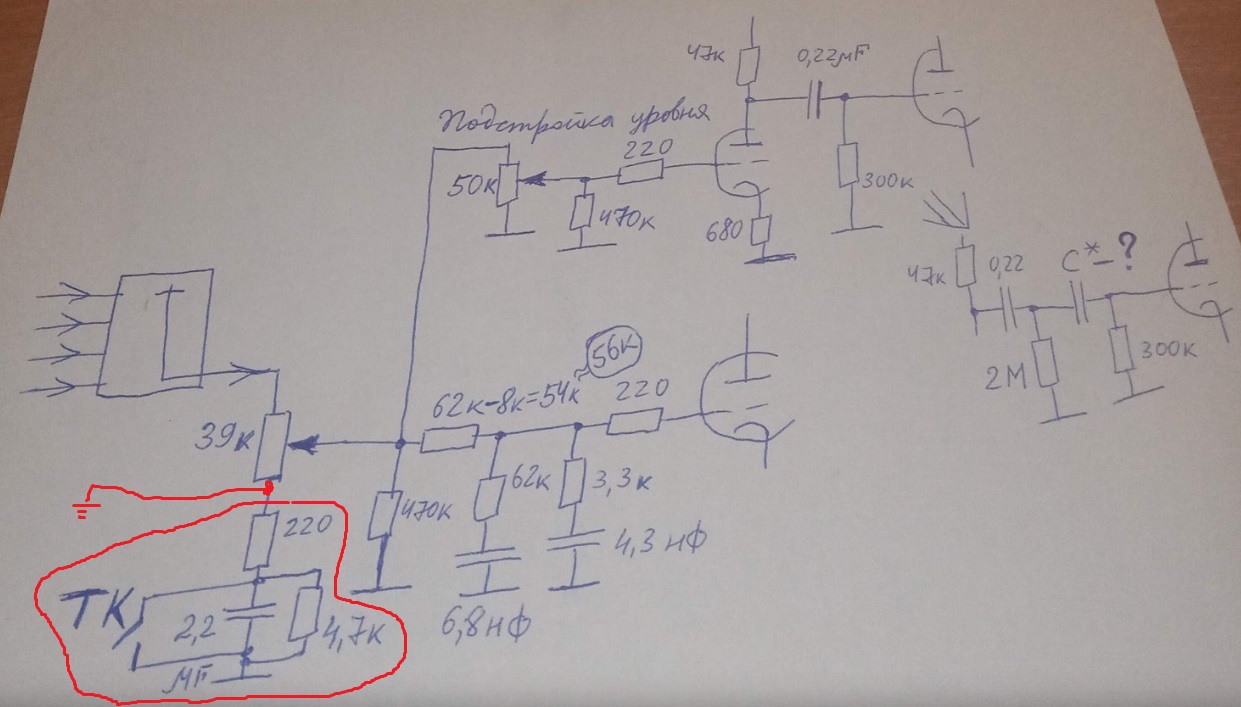 47к
0,22мF
Подстройка уровня
220
50к
470к
300к
680
47к
0,22
С*-?
2М
300к
56к
62к-8к=54к
220
39к
62к
3,3к
470к
220
4,3 нФ
ТК
2,2
4,7к
6,8нФ
МF